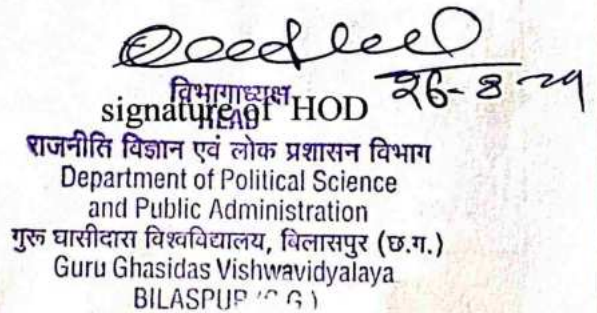 26-8-24
विभागाध्यक्ष
signature of HOD
HEAD
राजनीति विज्ञान एवं लोक प्रशासन विभाग
Department of Political Science
and Public Administration
गुरू घासीदास विश्वविद्यालय, बिलासपुर (छ.ग.)
Guru Ghasidas Vishwavidyalaya
BILASPUR (C.G.)